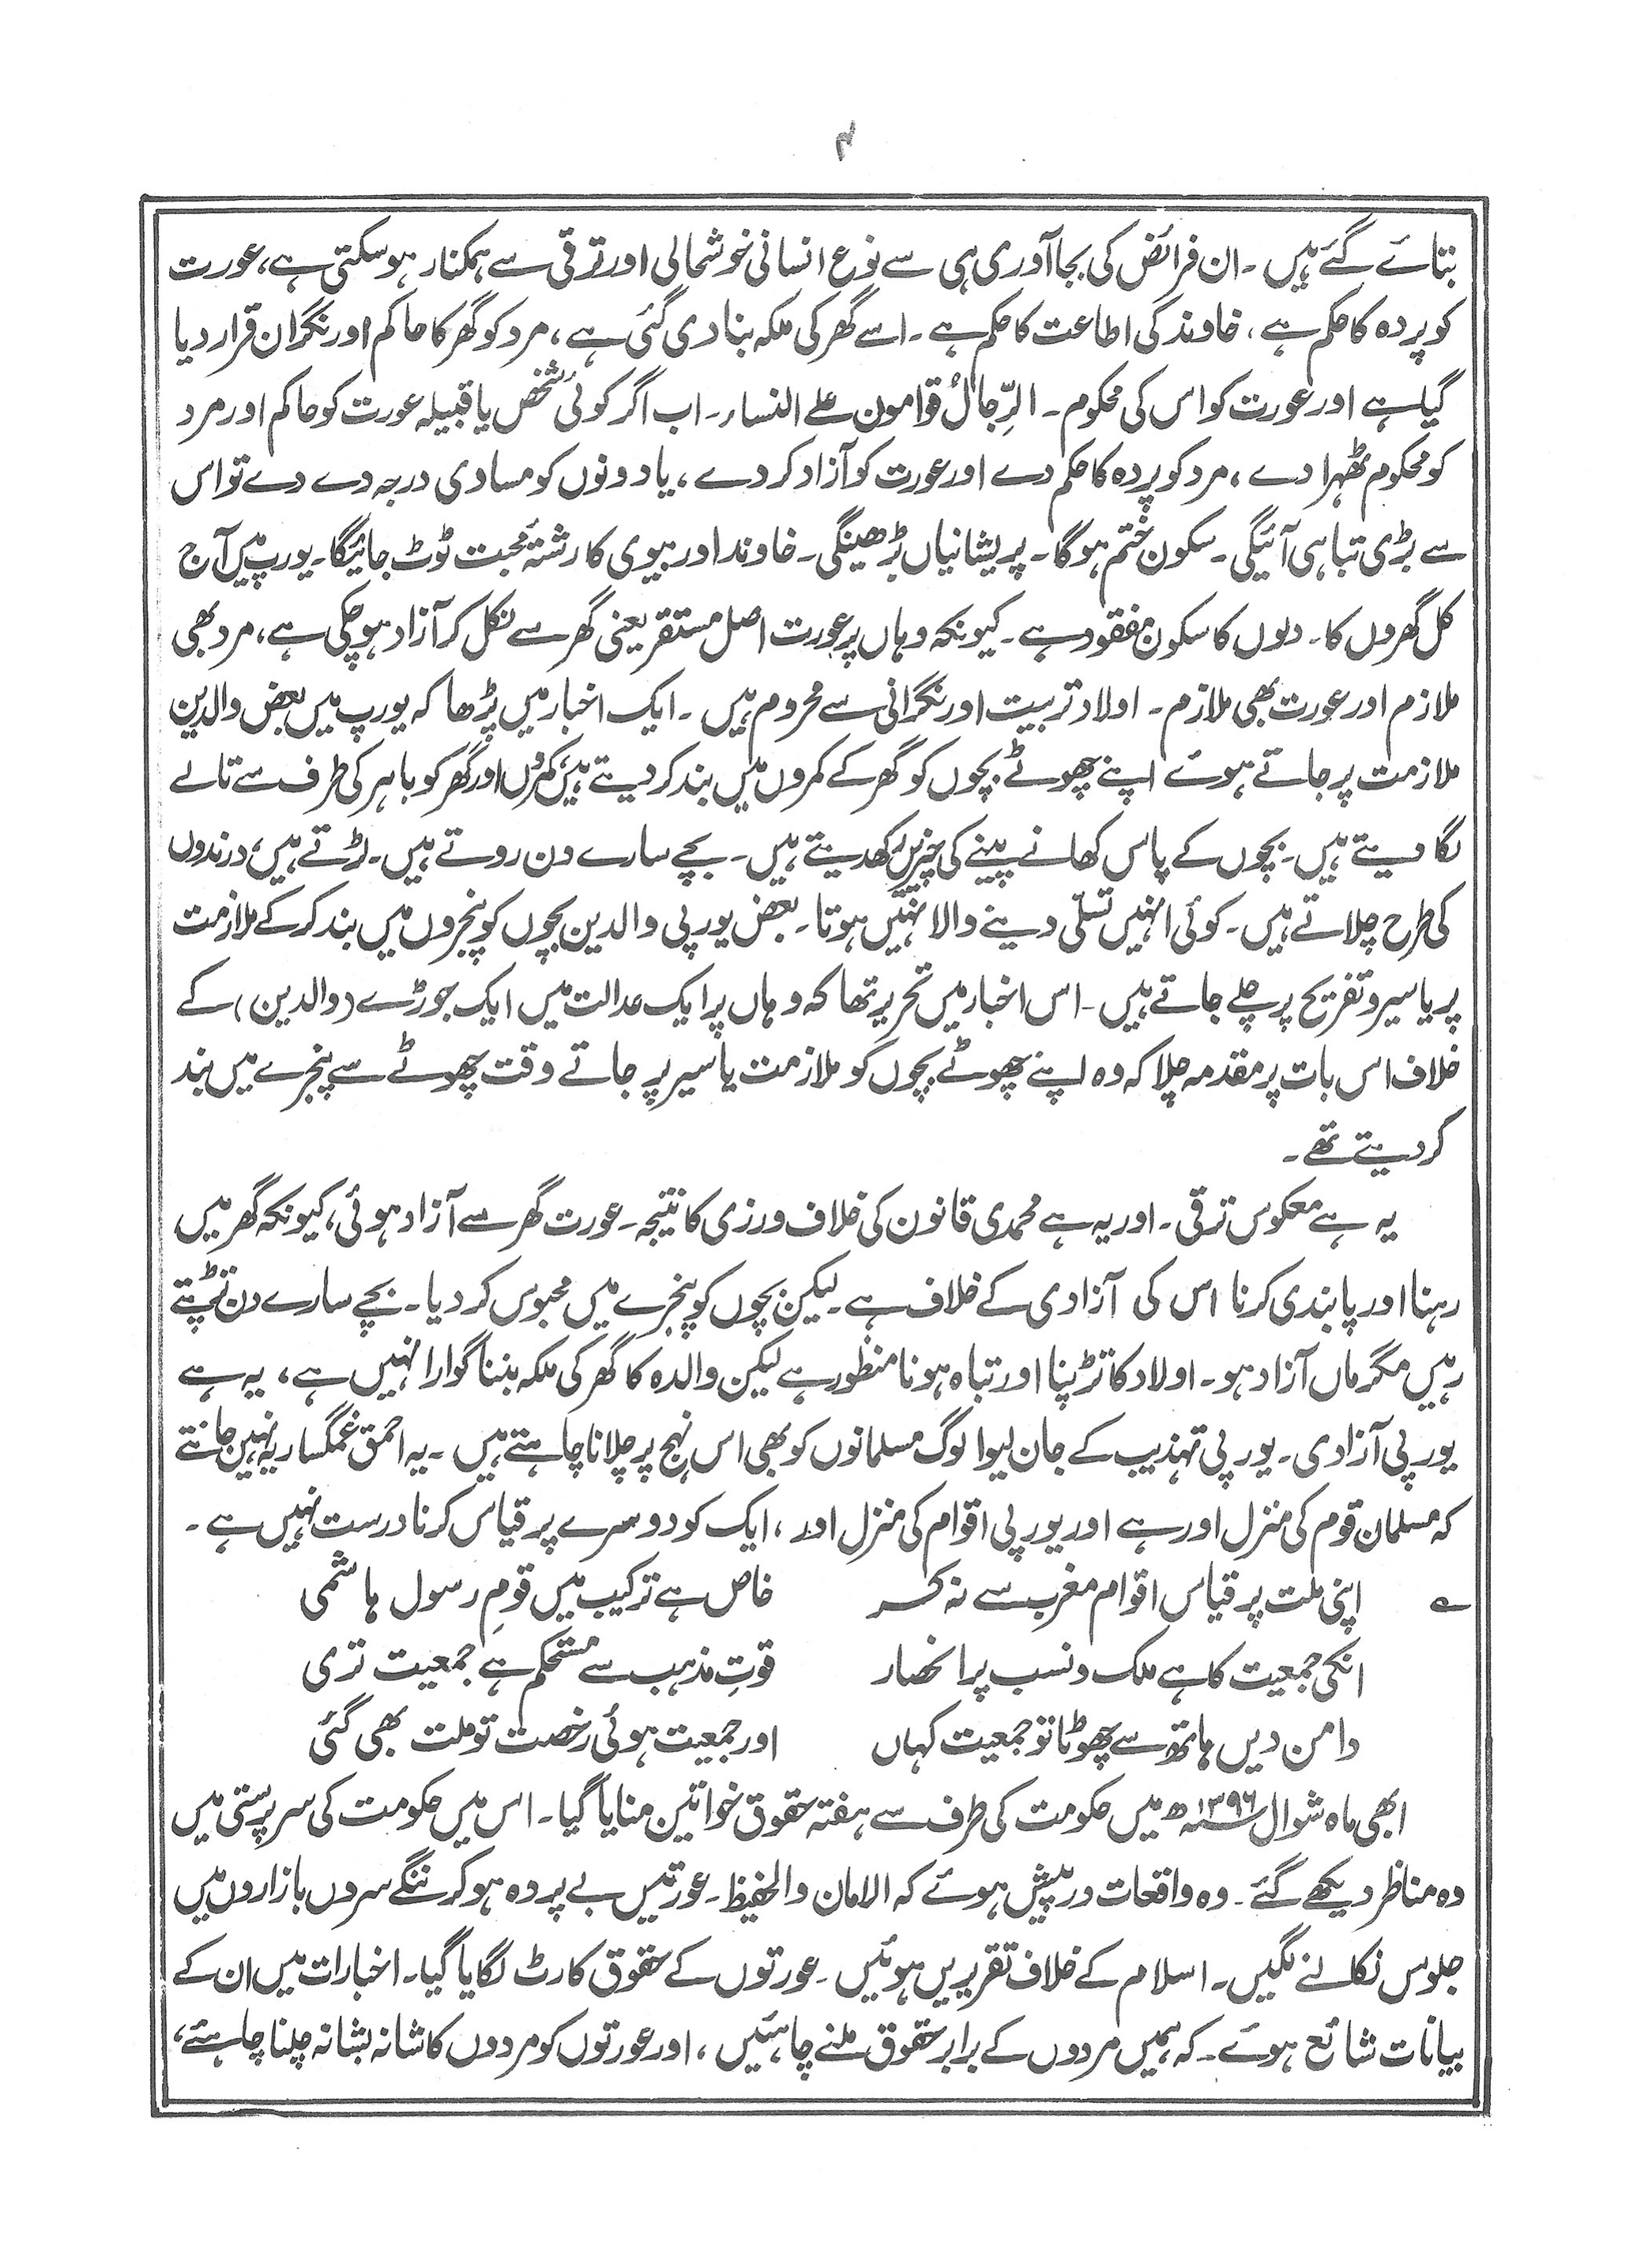 ۴
بتائے گئے ہیں ۔ ان فرائض کی بجا آوری ہی سے نوع انسانی خوشحالی اور ترقی سے ہمکنار ہو سکتی ہے، عورت
کو پردہ کا حکم ہے، خاوند کی اطاعت کا حکم ہے ۔ اسے گھر کی ملکہ بنا دی گئی ہے، مرد کو گھر کا حاکم اور نگران قرار دیا
گیا ہے اور عورت کو اس کی محکوم ۔ الرِّجالُ قوامون علی النساء ۔ اب اگر کوئی شخص یا قبیلہ عورت کو حاکم اور مرد
کو محکوم ٹھہرا دے ، مرد کو پردہ کا حکم دے اور عورت کو آزاد کر دے ، یا دونوں کو مساوی درجہ دے دے تو اس
سے بڑی تباہی آئیگی ۔ سکون ختم ہو گا ۔ پریشانیاں بڑھینگی ۔ خاوند اور بیوی کا رشتۂ محبت ٹوٹ جائیگا ۔ یورپ میں آج
کل گھروں کا ۔ دلوں کا سکون مفقود ہے ۔ کیونکہ وہاں پر عورت اصل مستقر یعنی گھر سے نکل کر آزاد ہو چکی ہے، مرد بھی
ملازم اور عورت بھی ملازم ۔ اولاد تربیت اور نگرانی سے محروم ہیں ۔ ایک اخبار میں پڑھا کہ یورپ میں بعض والدین
ملازمت پر جاتے ہوئے اپنے چھوٹے بچوں کو گھر کے کمروں میں بند کر دیتے ہیں، کمروں اور گھر کو باہر کی طرف سے تالے
لگا دیتے ہیں ۔ بچوں کے پاس کھانے پینے کی چیزیں رکھدیتے ہیں ۔ بچے سارے دن روتے ہیں ۔ لڑتے ہیں، درندوں
کی طرح چلاتے ہیں ۔ کوئی انہیں تسلّی دینے والا نہیں ہوتا ۔ بعض یورپی والدین بچوں کو پنجروں میں بند کر کے ملازمت
پر یا سیر و تفریح پر چلے جاتے ہیں ۔ اس اخبار میں تحریر تھا کہ وہاں پر ایک عدالت میں ایک جوڑے (والدین) کے
خلاف اس بات پر مقدمہ چلا کہ وہ اپنے چھوٹے بچوں کو ملازمت یا سیر پر جاتے وقت چھوٹے سے پنجرے میں بند
کر دیتے تھے ۔
یہ ہے معکوس ترقی ۔ اور یہ ہے محمدی قانون کی خلاف ورزی کا نتیجہ ۔ عورت گھر سے آزاد ہوئی، کیونکہ گھر میں
رہنا اور پابندی کرنا اس کی آزادی کے خلاف ہے ۔ لیکن بچوں کو پنجرے میں محبوس کر دیا ۔ بچے سارے دن تڑپتے
رہیں مگر ماں آزاد ہو ۔ اولاد کا تڑپنا اور تباہ ہونا منظور ہے لیکن والدہ کا گھر کی ملکہ بننا گوارا نہیں ہے، یہ ہے
یورپی آزادی ۔ یورپی تہذیب کے جان لیوا لوگ مسلمانوں کو بھی اس نہج پر چلانا چاہتے ہیں ۔ یہ احمق غمگسار یہ نہیں جانتے
کہ مسلمان قوم کی منزل اور ہے اور یورپی اقوام کی منزل اور ، ایک کو دوسرے پر قیاس کرنا درست نہیں ہے ۔
؎ اپنی ملت پر قیاس اقوام مغرب سے نہ کر خاص ہے ترکیب میں قومِ رسول ہاشمی
انکی جمعیت کا ہے ملک و نسب پر انحصار قوتِ مذہب سے مستحکم ہے جمعیت تری
دامن دیں ہاتھ سے چھوٹا تو جمعیت کہاں اور جمعیت ہوئی رخصت تو ملت بھی گئی
ابھی ماہ شوال ۱۳۹۶ھ میں حکومت کی طرف سے ہفتہ حقوق خواتین منایا گیا ۔ اس میں حکومت کی سرپرستی میں
وہ مناظر دیکھے گئے ۔ وہ واقعات درپیش ہوئے کہ الامان والحفیظ ۔ عورتیں بے پردہ ہو کر ننگے سروں بازاروں میں
جلوس نکالنے لگیں ۔ اسلام کے خلاف تقریریں ہوئیں ۔ عورتوں کے حقوق کا رٹ لگایا گیا ۔ اخبارات میں ان کے
بیانات شائع ہوئے ۔ کہ ہمیں مردوں کے برابر حقوق ملنے چاہئیں ، اور عورتوں کو مردوں کا شانہ بشانہ چلنا چاہئے،